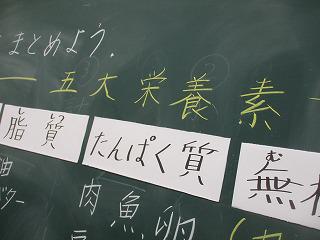 まとめよう。
五大栄養素
脂質 たんぱく質 無
肉 魚 卵